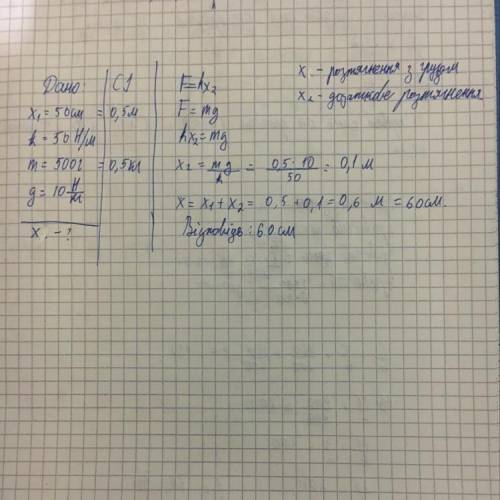 Дано: СІ
x₁ = 50см = 0,5м
k = 50 Н/м
m = 500г = 0,5кг
g = 10 Н/кг
x, - ?
F = kx₂
F = mg
kx₂ = mg
x₂ = mg/k = 0,5·10/50 = 0,1 м
x = x₁ + x₂ = 0,5 + 0,1 = 0,6 м = 60см.
Відповідь: 60см
x - розтягнення з грузом
x₂ - додаткове розтягнення